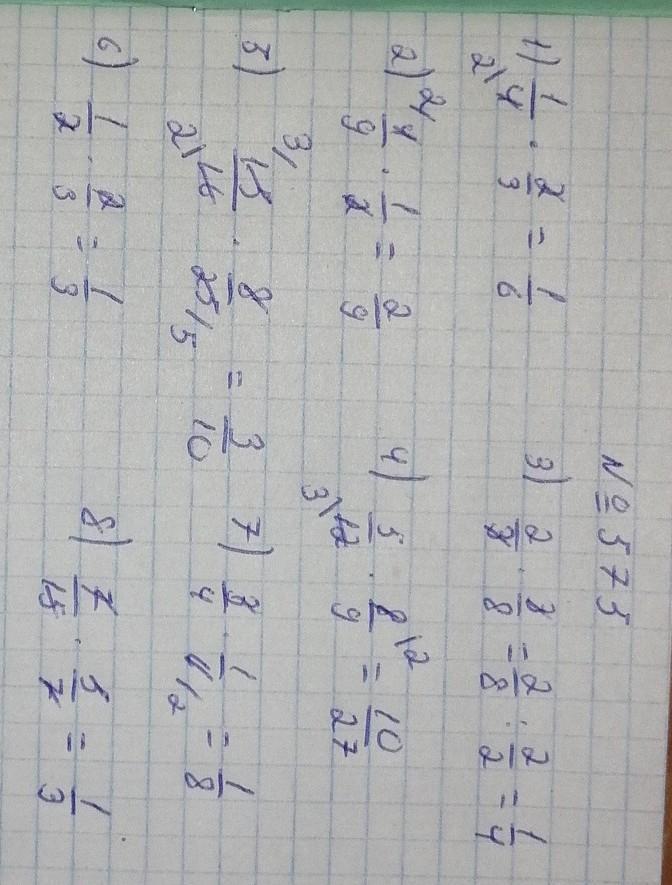 № 575
1) 1/4 · 2/3 = 1/6
2) 4/9 · 1/2 = 2/9
3) 2/3 · 3/8 = 2/8 : 2/2 = 1/4
4) 5/12 · 8/9 = 10/27
5) 15/16 · 8/25 = 3/10
6) 1/2 · 2/3 = 1/3
7) 3/4 · 1/6 = 1/8
8) 7/15 · 5/7 = 1/3